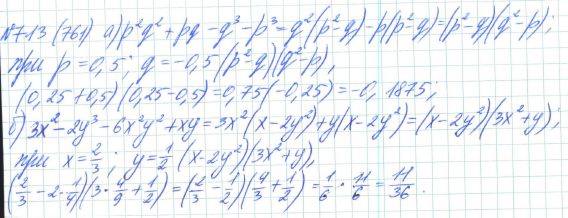 №713 (761) а) p²q² + pq - q³ - p³ = q²(p²-q) - p(p²-q) = (p²-q)(q²-p);
при p = 0,5; q = -0,5 (p²-q)(q²-p),
(0,25+0,5)(0,25-0,5) = 0,75(-0,25) = -0,1875;
б) 3x² - 2y³ - 6x²y² + xy = 3x²(x-2y²) + y(x-2y²) = (x-2y²)(3x²+y);
при x = 2/3; y = 1/2 (x-2y²)(3x²+y),
(2/3 - 2·1/4)(3·4/9 + 1/2) = (2/3 - 1/2)(4/3 + 1/2) = 1/6 · 11/6 = 11/36.